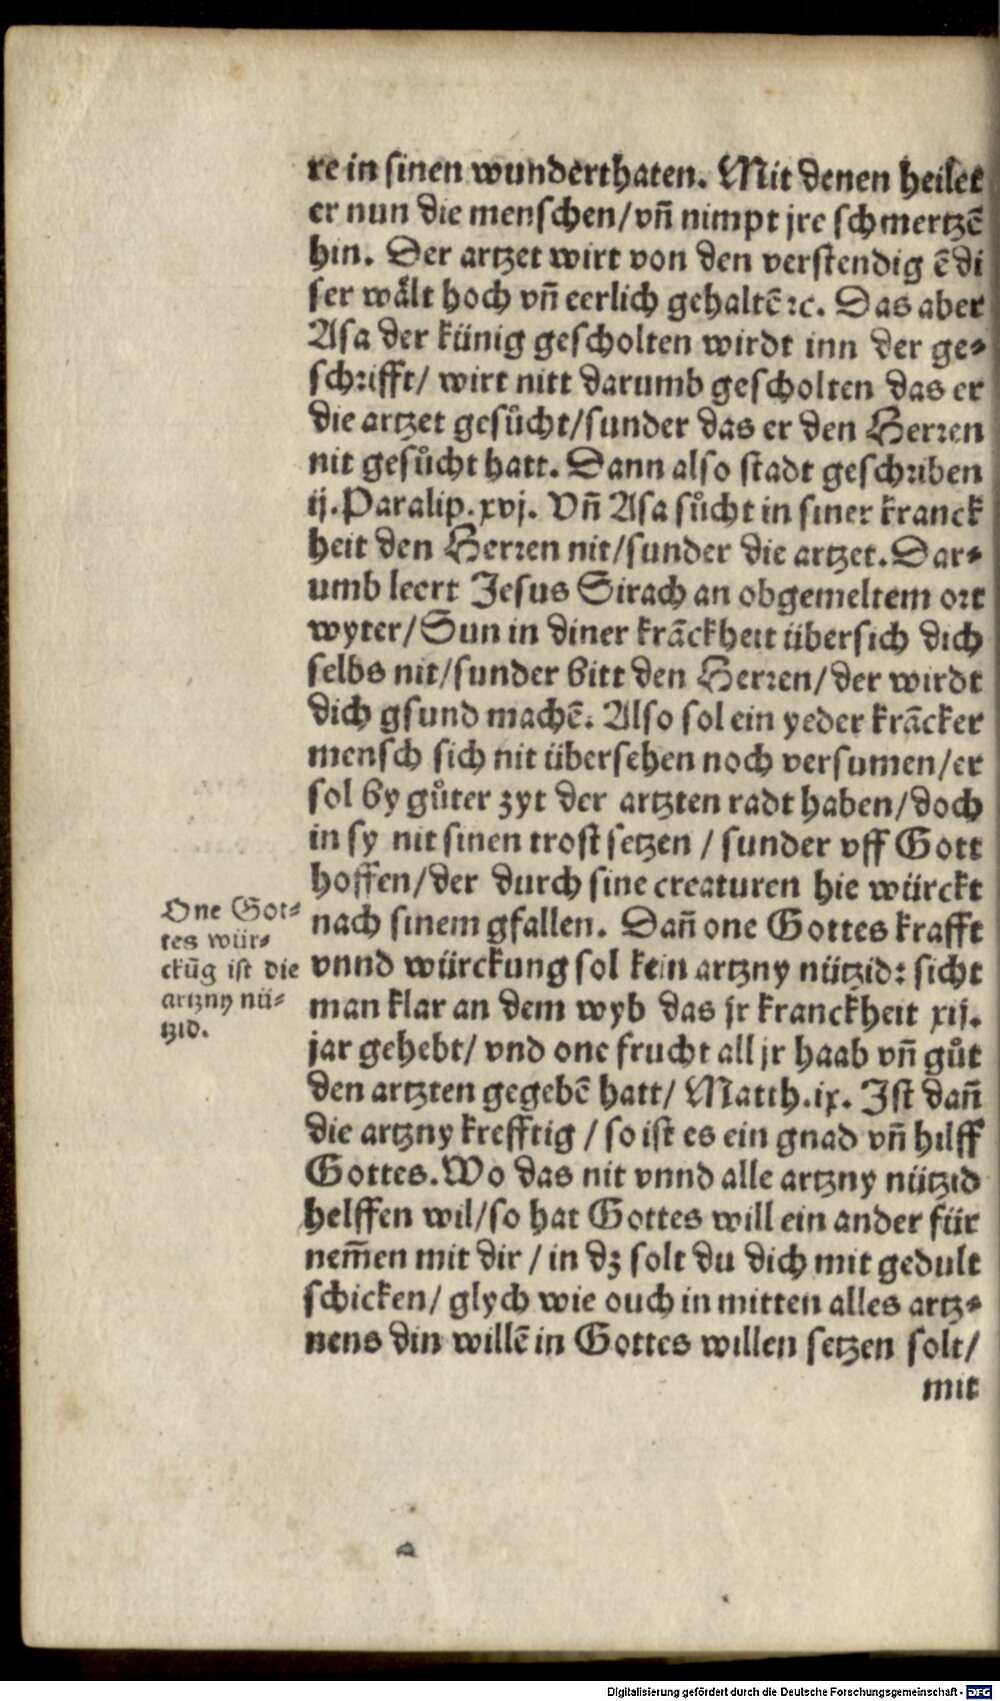 re in sinen wunderthaten. Mit denen heilet
er nun die menschen/vn̄ nimpt jre schmertzē
hin. Der artzet wirt von den verstendig ē di
ser wält hoch vn̄ eerlich gehaltē ꝛc. Das aber
Asa der künig gescholten wirdt inn der ge⸗
schrifft/ wirt nitt darumb gescholten das er
die artzet gesůcht/sunder das er den Herren
nit gesůcht hatt. Dann also stadt geschriben
ij. Paralip. xvj. Vn̄ Asa sůcht in siner kranck
heit den Herren nit/sunder die artzet. Dar⸗
umb leert Jesus Sirach an obgemeltem ort
wyter/Sun in diner krāckheit übersich dich
selbs nit/sunder bitt den Herren/der wirdt
dich gsund machē. Also sol ein yeder krācker
mensch sich nit übersehen noch versumen/er
sol by gůter zyt der artzten radt haben/doch
in sy nit sinen trost setzen / sunder vff Gott
hoffen/der durch sine creaturen hie würckt
nach sinem gfallen. Dan̄ one Gottes krafft
vnnd würckung sol kein artzny nützid: sicht
man klar an dem wyb das jr kranckheit xij.
jar gehebt/ vnd one frucht all jr haab vn̄ gůt
den artzten gegebē hatt/ Matth. ix. Ist dan̄
die artzny krefftig / so ist es ein gnad vn̄ hilff
Gottes. Wo das nit vnnd alle artzny nützid
helffen wil/so hat Gottes will ein ander für
nem̄en mit dir / in dz solt du dich mit gedult
schicken/ glych wie ouch in mitten alles artz⸗
nens din willē in Gottes willen setzen solt/
mit
One Got⸗
tes wür⸗
ckūg ist die
artzny nü⸗
tzid.
Digitalisierung gefördert durch die Deutsche Forschungsgemeinschaft - DFG